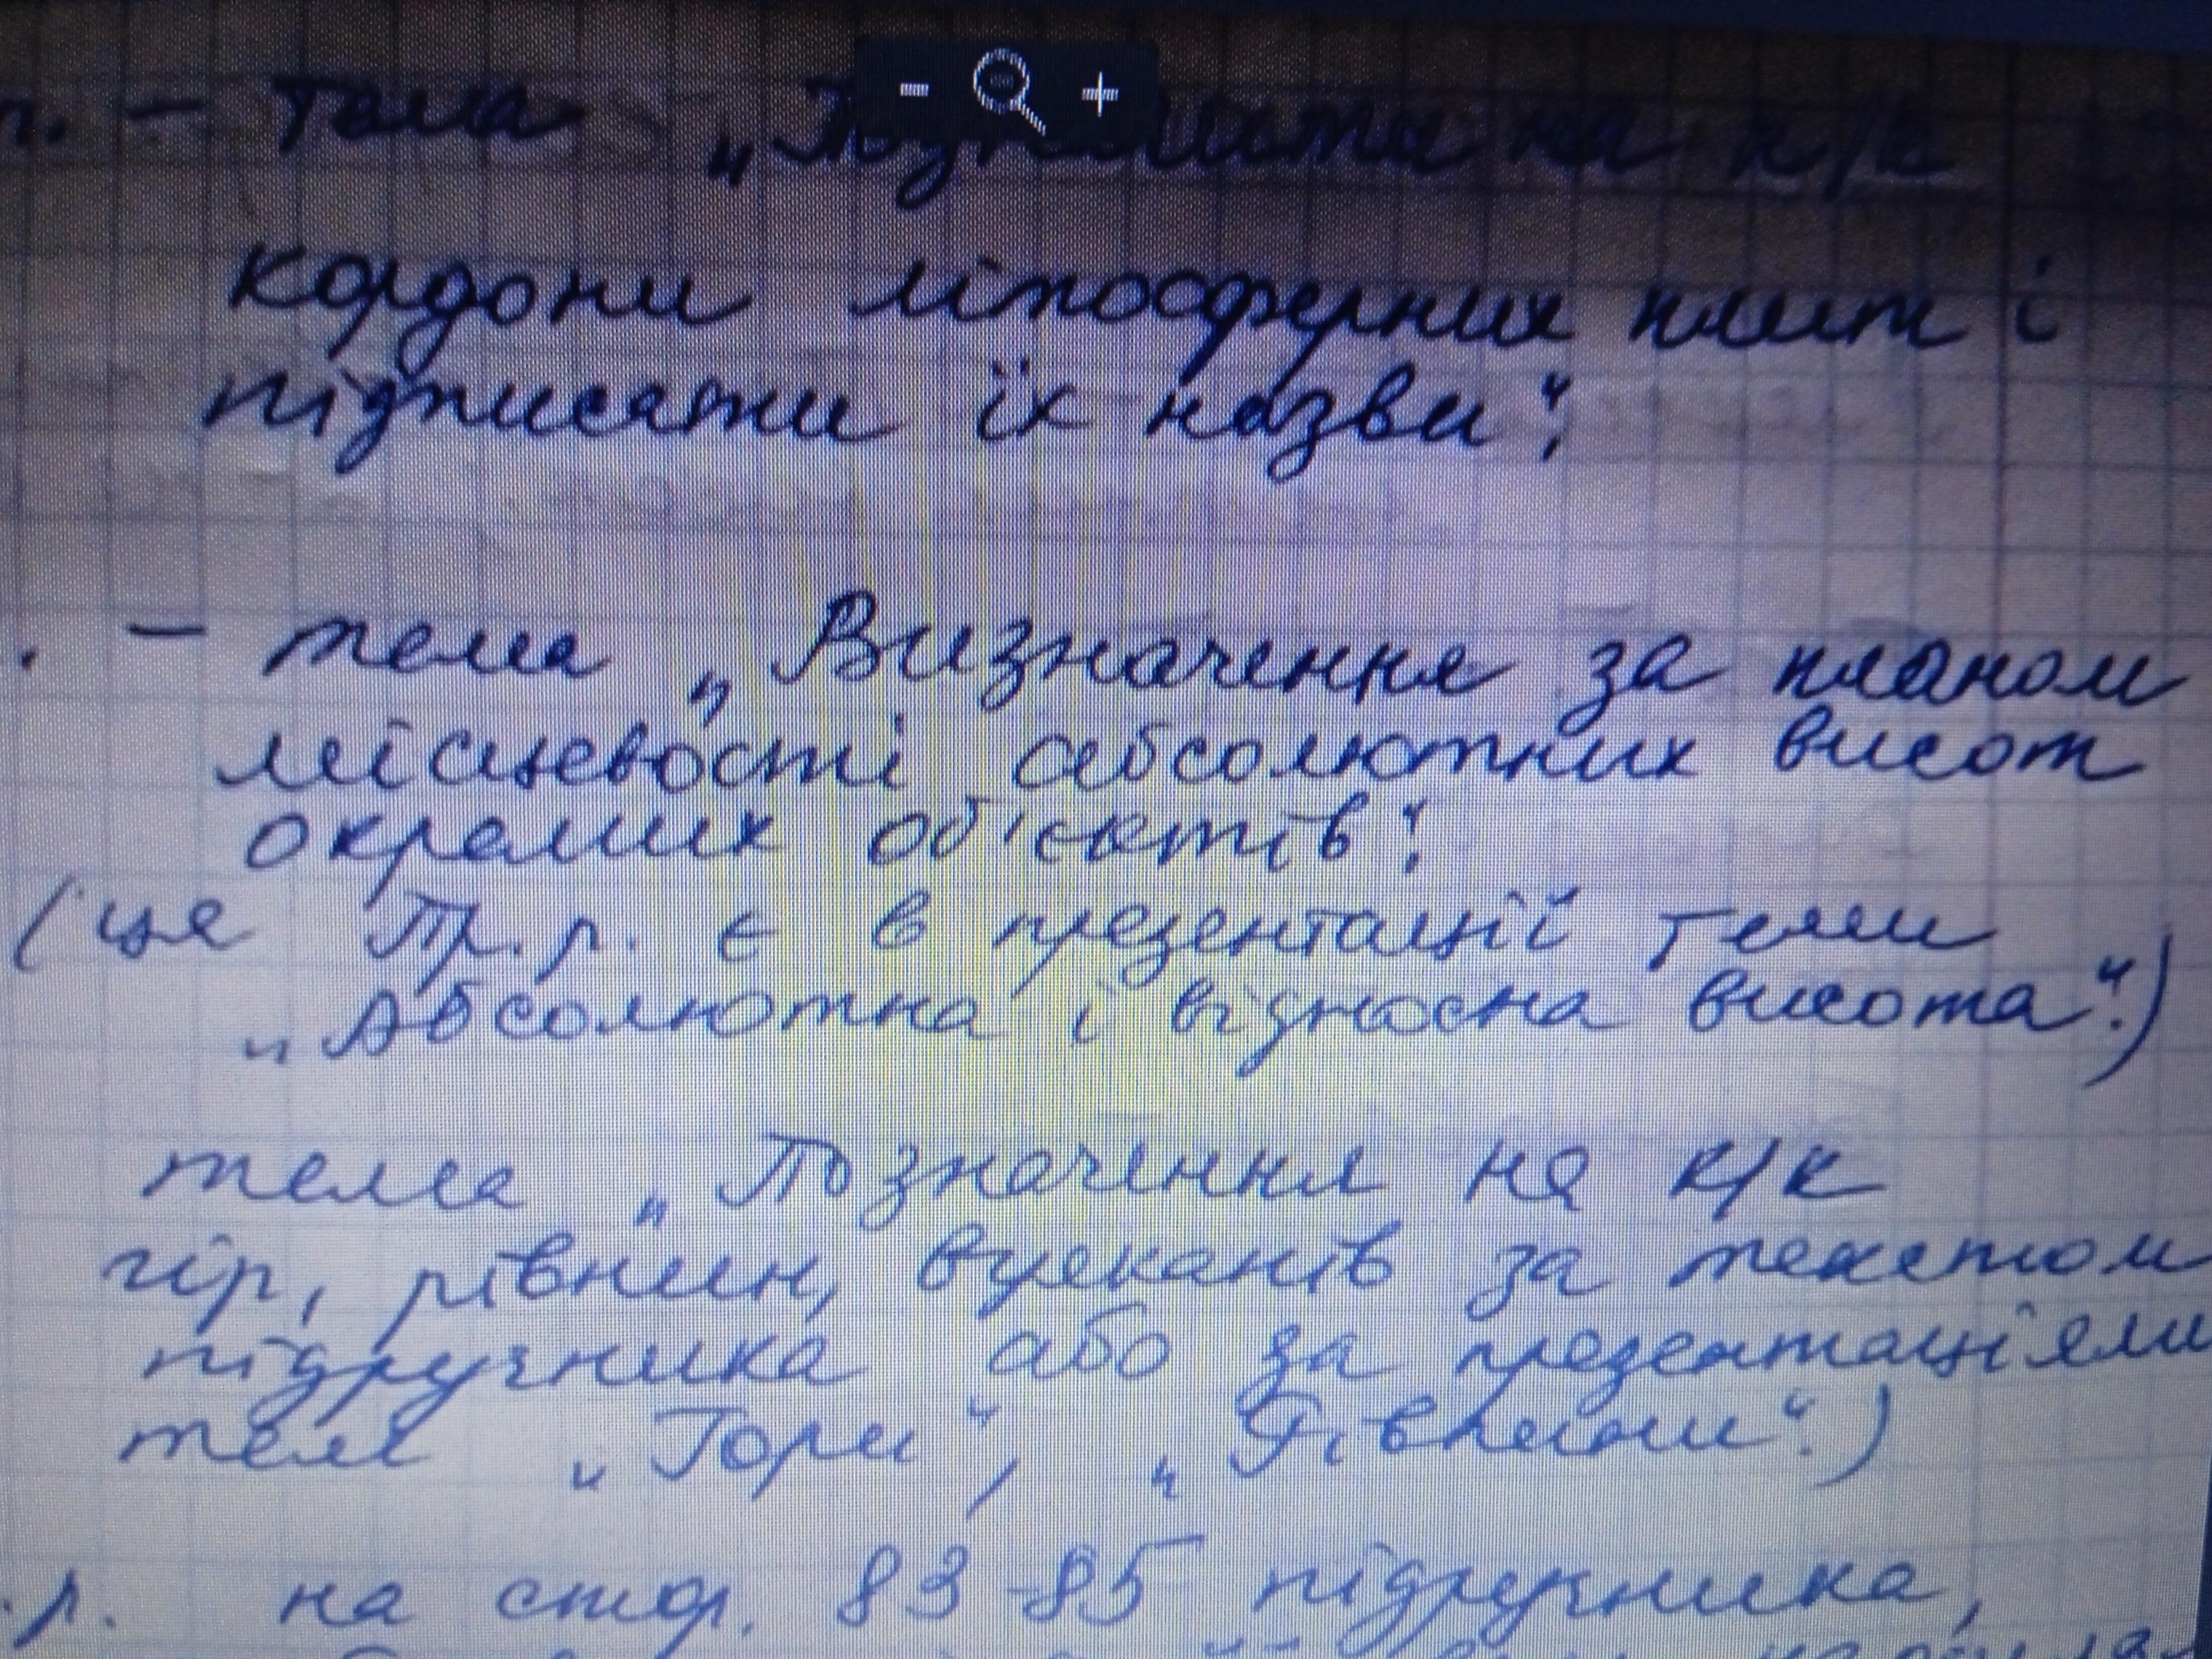 п. – тема „Позначити на к/к
кордони літосферних плит і
підписати їх назви“;
. – тема „Визначення за планом
місцевості абсолютних висот
окремих об'єктів“.
(ця Пр.р. є в презентації теми
„Абсолютна і відносна висота“.)
тема „Позначення на к/к
гір, рівнин, вулканів за текстом
підручника або за презентаціями
тем „Гори“, „Рівнини“.)
.р. на стор. 83-85 підручника,